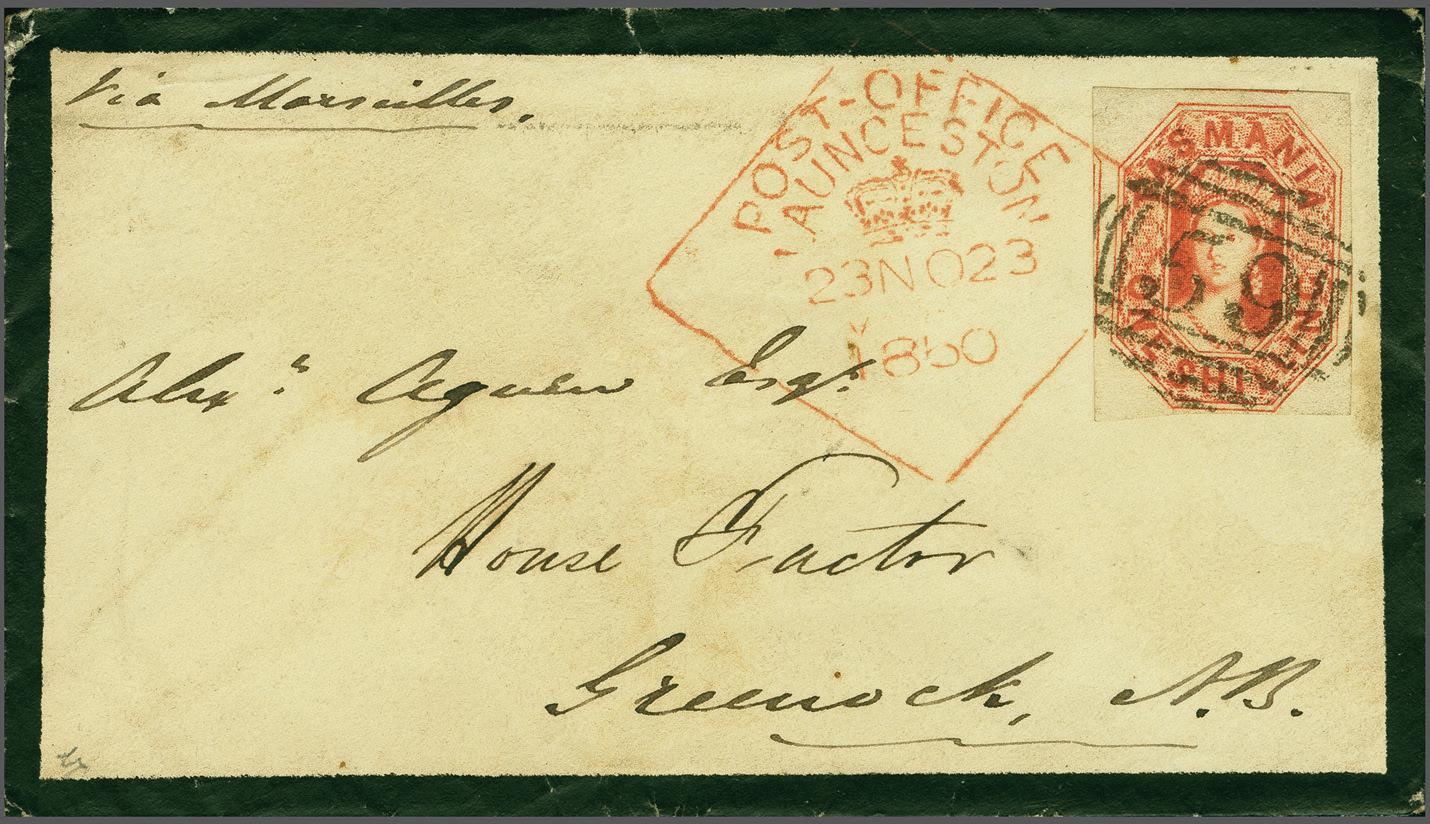 Via Marseilles,
POST-OFFICE
LAUNCESTON
23 NO 23
1860
TASMANIA
ONE SHILLING
59
Alexr. Agnew Esqr.
House Factor
Greenock, N.B.